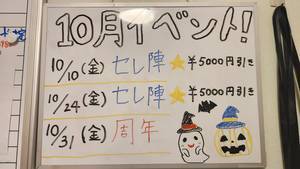 10月イベント!
10/10(金)セレ陣★¥5000円引き
10/24(金)セレ陣★¥5000円引き
10/31(金)周年